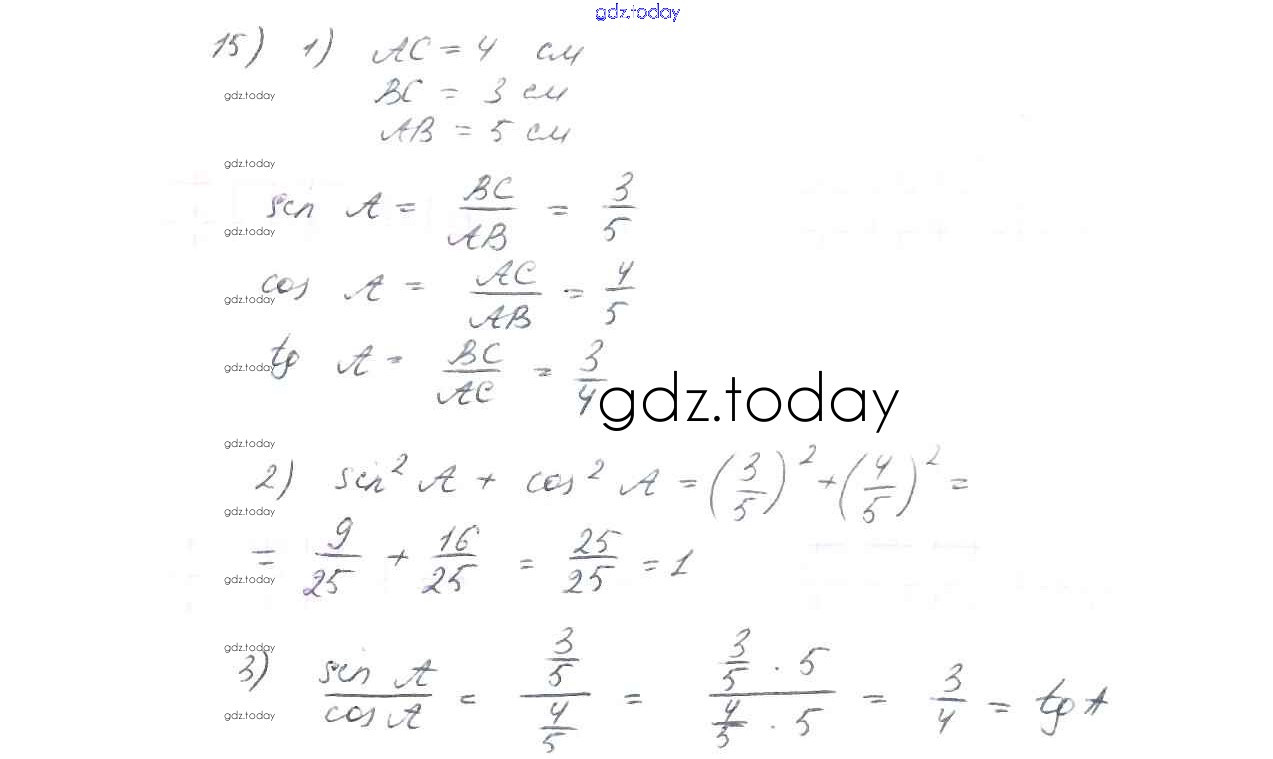 gdz.today
15) 1) AC = 4 см
gdz.today
BC = 3 см
AB = 5 см
gdz.today
sin A = BC/AB = 3/5
gdz.today
cos A = AC/AB = 4/5
gdz.today
tg A = BC/AC = 3/4
gdz.today
gdz.today
gdz.today
2) sin² A + cos² A = (3/5)² + (4/5)² =
gdz.today
= 9/25 + 16/25 = 25/25 = 1
gdz.today
gdz.today
3) sin A / cos A = (3/5)/(4/5) = (3/5 · 5)/(4/5 · 5) = 3/4 = tg A
gdz.today